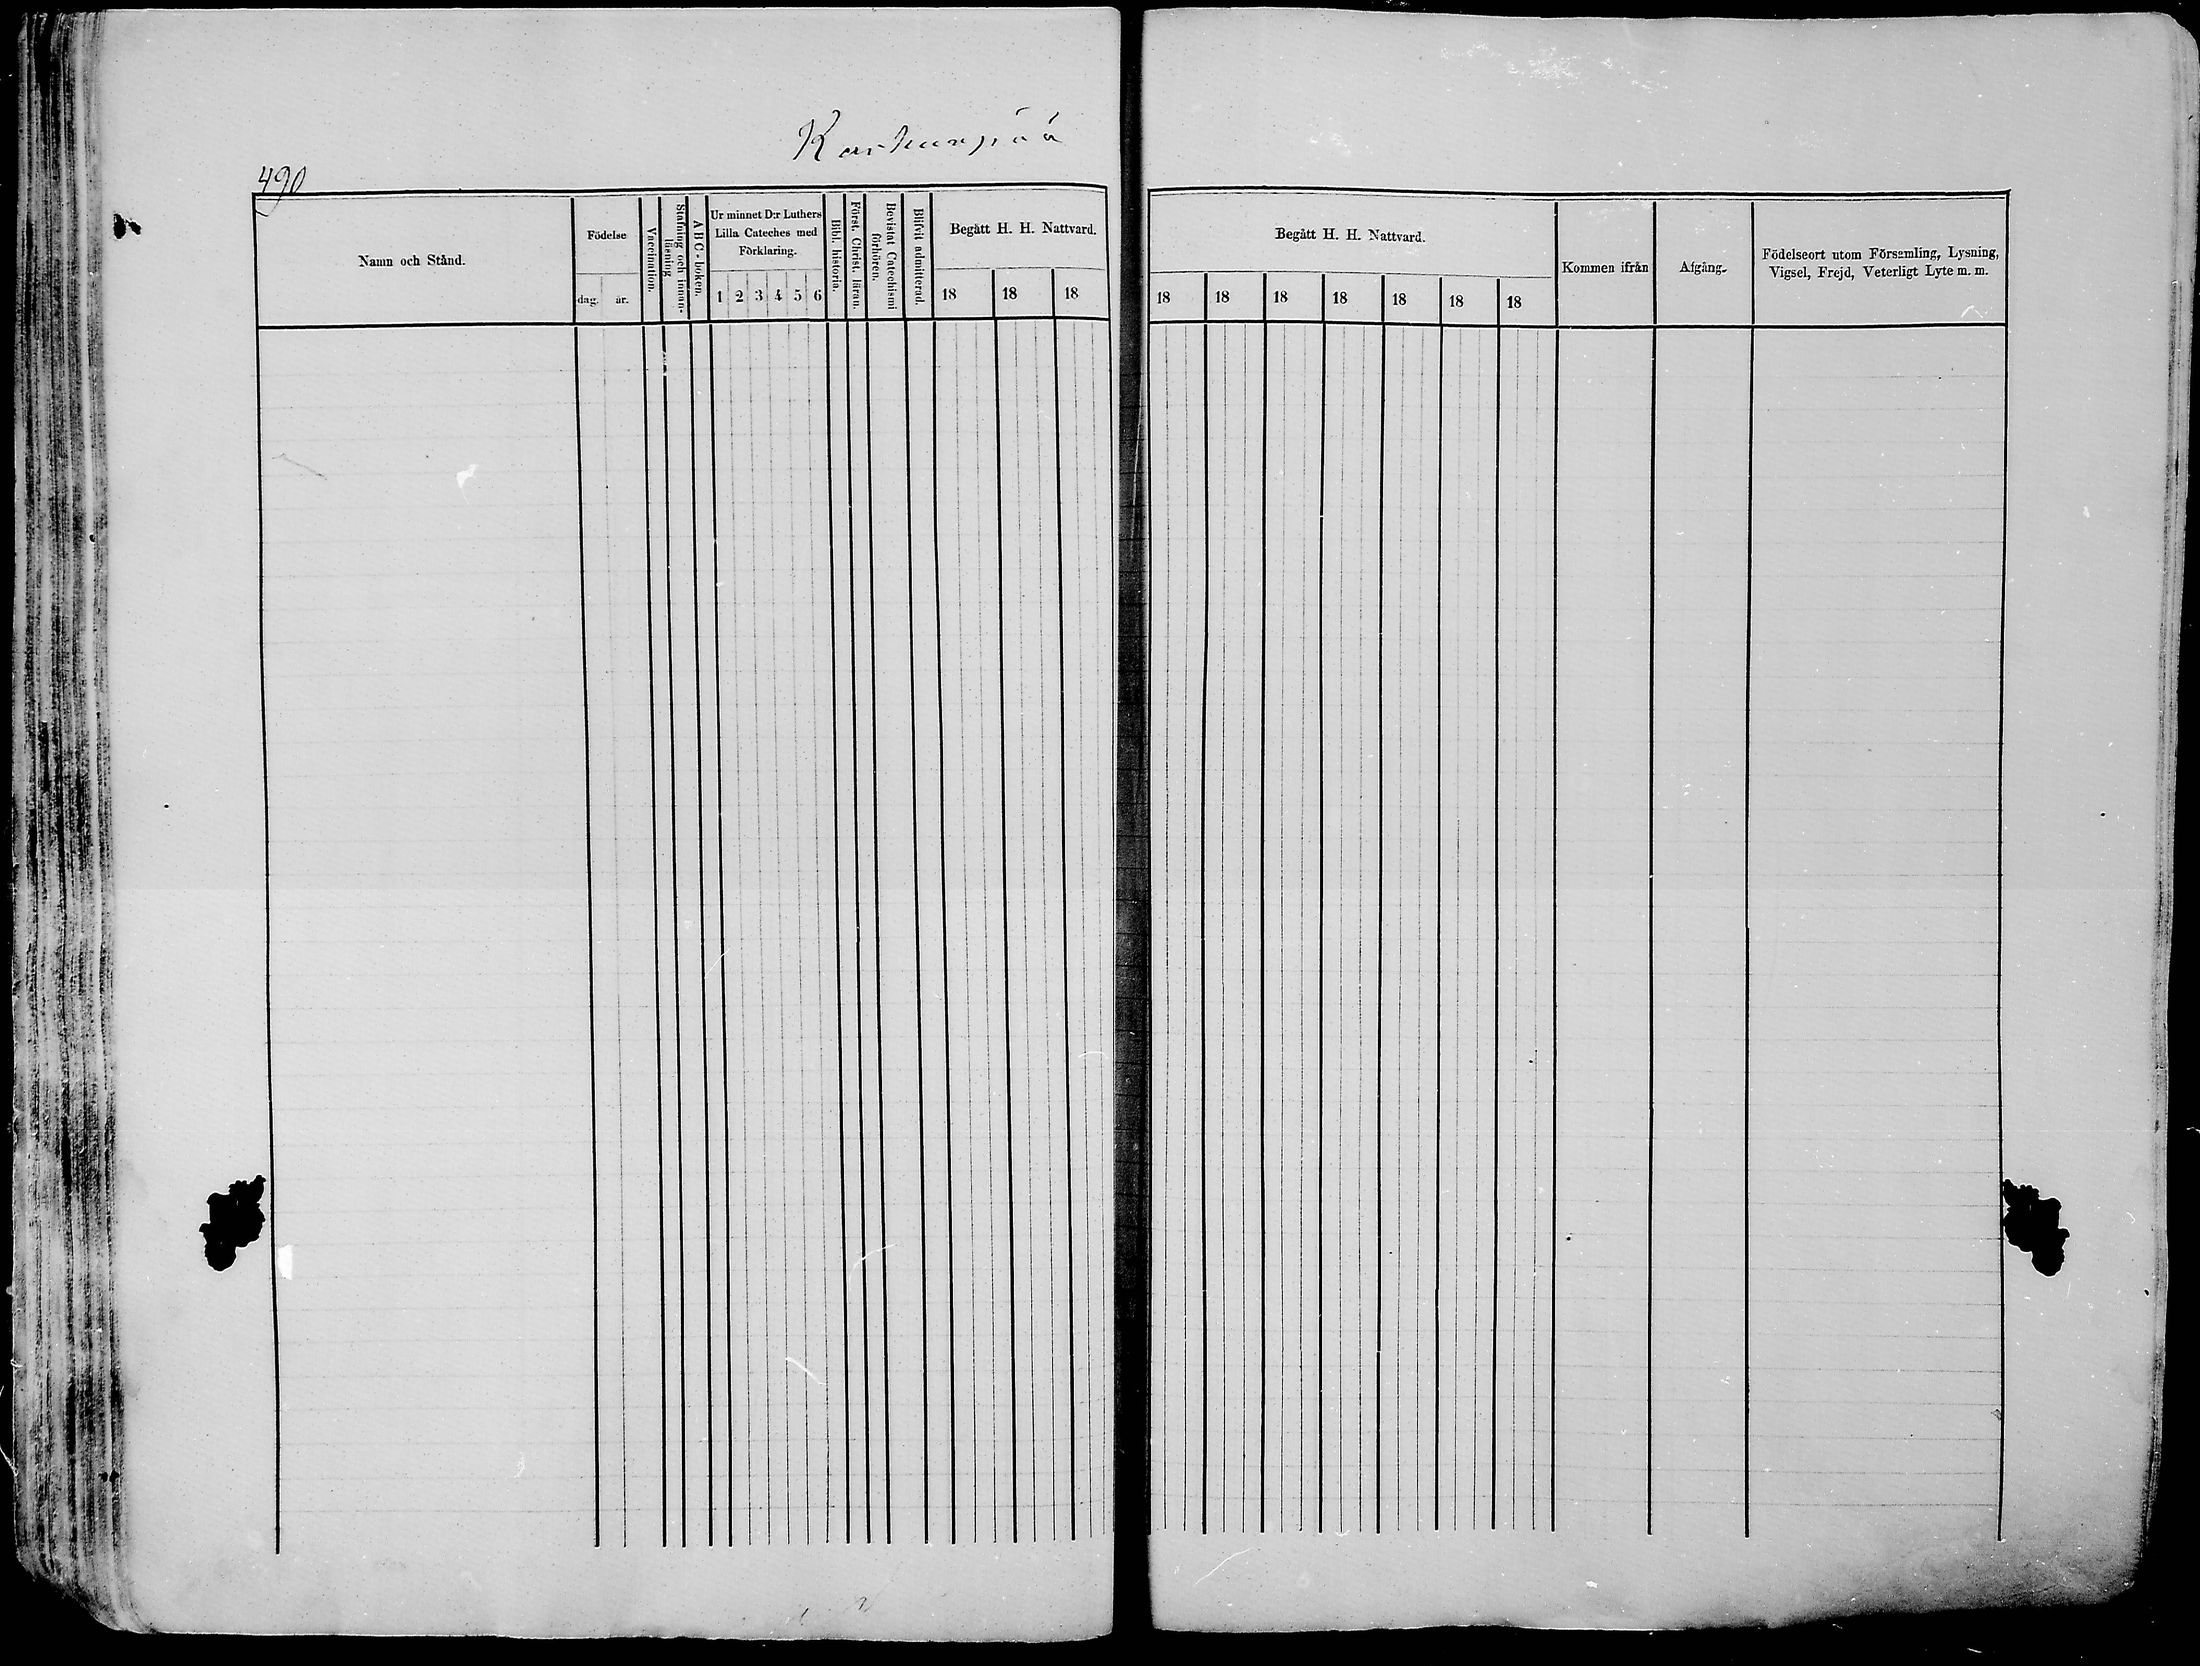 Karhunpää
490
Namn och Stånd.
Födelse
dag.
år.
Vaccination.
Stafning och innan-
läsning
ABC-boken.
Ur minnet D:r Luthers
Lilla Cateches med
Förklaring.
1 2 3 4 5 6
Bibl. historia.
Först. Christ. läran.
Bevistat Catechismi
förhören.
Blifvit admitterad.
Begått H. H. Nattvard.
18 18 18
Begått H. H. Nattvard.
18 18 18 18 18 18 18
Kommen ifrån
Afgång.
Födelseort utom Församling, Lysning,
Vigsel, Frejd, Veterligt Lyte m. m.